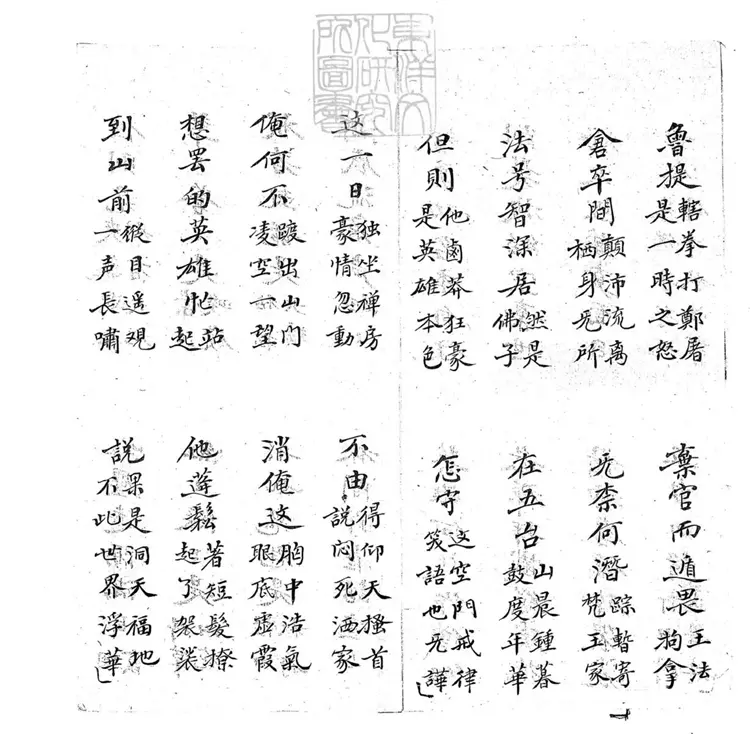 東洋文化研究所圖書
魯提轄拳打鄭屠是一時之怒
棄官而遁畏王法拘拿
倉卒間顛沛流離栖身无所
无柰何潛踪暫寄梵王家
法号智深居然是佛子
在五台山晨鍾暮鼓度年華
但則他鹵莽狂豪是英雄本色
怎守这空門戒律笑語也无譁
这一日独坐禅房豪情忽動
不由得仰天搔首説闷死洒家
俺何不踱出山門凌空一望
消俺这胸中浩氣眼底虚霞
想罢的英雄忙站起
他蓬鬆著短髮撩起了袈裟
到山前縱目遥观一声長嘯
説果是洞天福地不此世界浮華